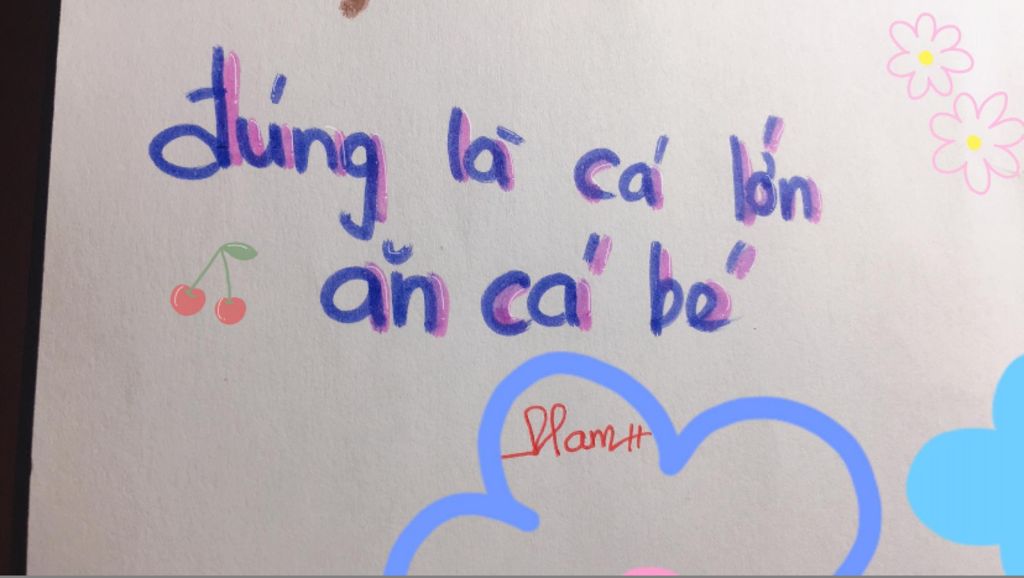 đúng là cá lớn
ăn cá bé